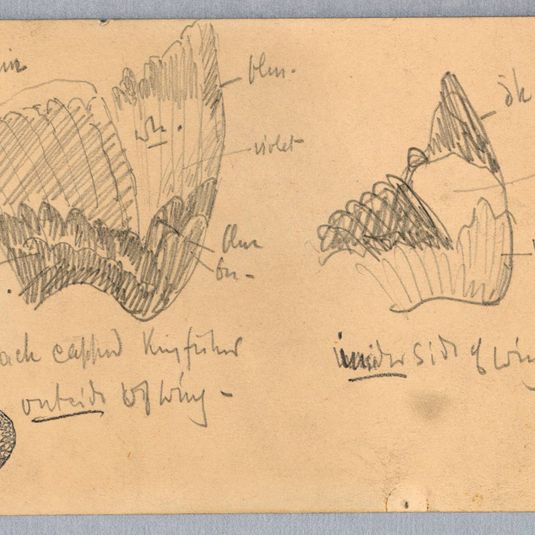 blu.
wh.
violet
blue
bn -
dk
ack capped Kingfisher
outside of wing -
inside side of wing